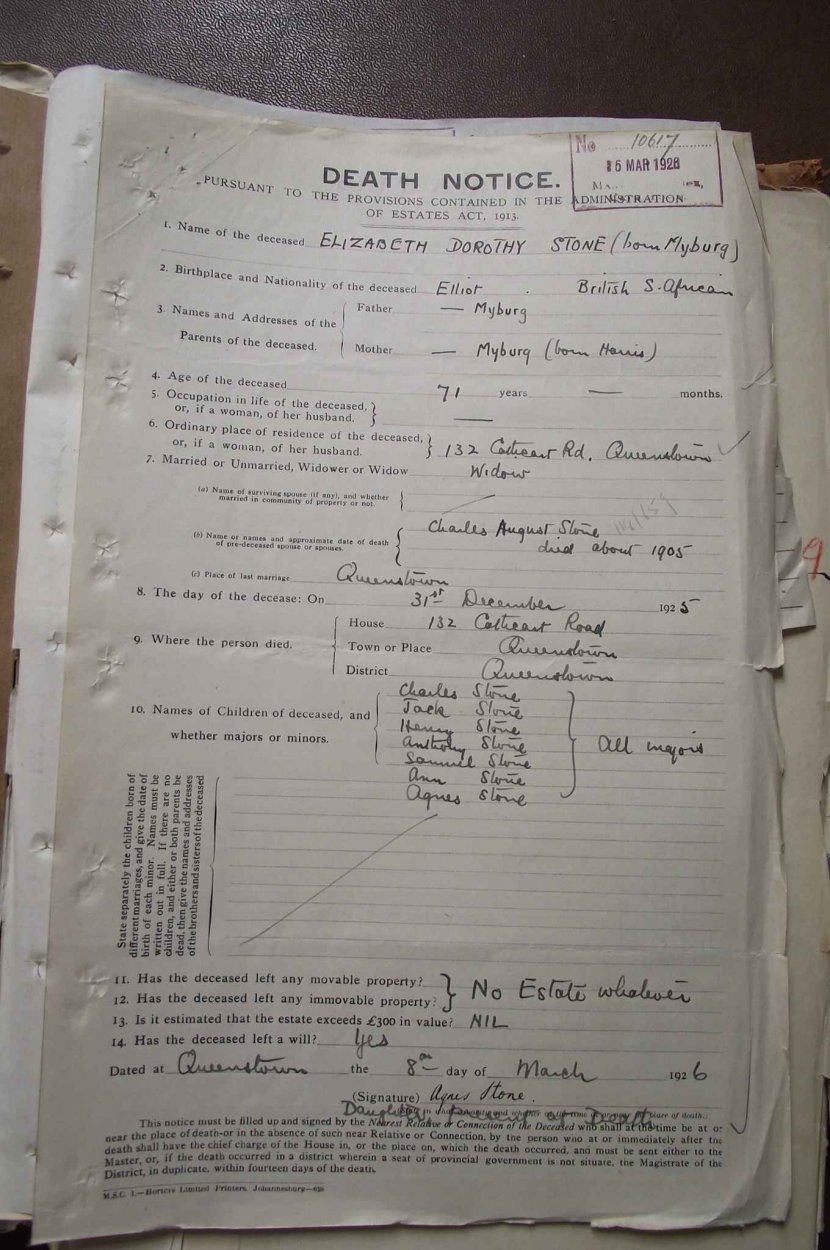 No 10617
15 MAR 1926
DEATH NOTICE.
PURSUANT TO THE PROVISIONS CONTAINED IN THE ADMINISTRATION
OF ESTATES ACT, 1913.
1. Name of the deceased ELIZABETH DOROTHY STONE (born Myburg)
2. Birthplace and Nationality of the deceased Elliot . British S. African
3. Names and Addresses of the Parents of the deceased.
Father — Myburg
Mother — Myburg (born Harris)
4. Age of the deceased 71 years — months.
5. Occupation in life of the deceased, or, if a woman, of her husband. —
6. Ordinary place of residence of the deceased, or, if a woman, of her husband. 132 Cathcart Rd. Queenstown
7. Married or Unmarried, Widower or Widow Widow
(a) Name of surviving spouse (if any), and whether married in community of property or not.
(b) Name or names and approximate date of death of pre-deceased spouse or spouses.
Charles August Stone
died about 1905
(c) Place of last marriage Queenstown
8. The day of the decease: On 31st December 1925
9. Where the person died.
House 132 Cathcart Road
Town or Place Queenstown
District Queenstown
10. Names of Children of deceased, and
whether majors or minors.
Charles Stone
Jack Stone
Henry Stone
Anthony Stone
Samuel Stone
Ann Stone
Agnes Stone
All majors
State separately the children born of
different marriages, and give the date of
birth of each minor. Names must be
written out in full. If there are no
children, and either or both parents be
dead, then give the names and addresses
of the brothers and sisters of the deceased
11. Has the deceased left any movable property?
12. Has the deceased left any immovable property?
No Estate whatever
13. Is it estimated that the estate exceeds £300 in value? NIL
14. Has the deceased left a will? Yes
Dated at Queenstown the 8th day of March 1926
(Signature) Agnes Stone.
Daughter Present at Death
This notice must be filled up and signed by the Nearest Relative or Connection of the Deceased who shall at the time be at or
near the place of death-or in the absence of such near Relative or Connection, by the person who at or immediately after the
death shall have the chief charge of the House in, or the place on, which the death occurred, and must be sent either to the
Master, or, if the death occurred in a district wherein a seat of provincial government is not situate, the Magistrate of the
District, in duplicate, within fourteen days of the death.
M.S.C. 1.—Hortors Limited Printers, Johannesburg—